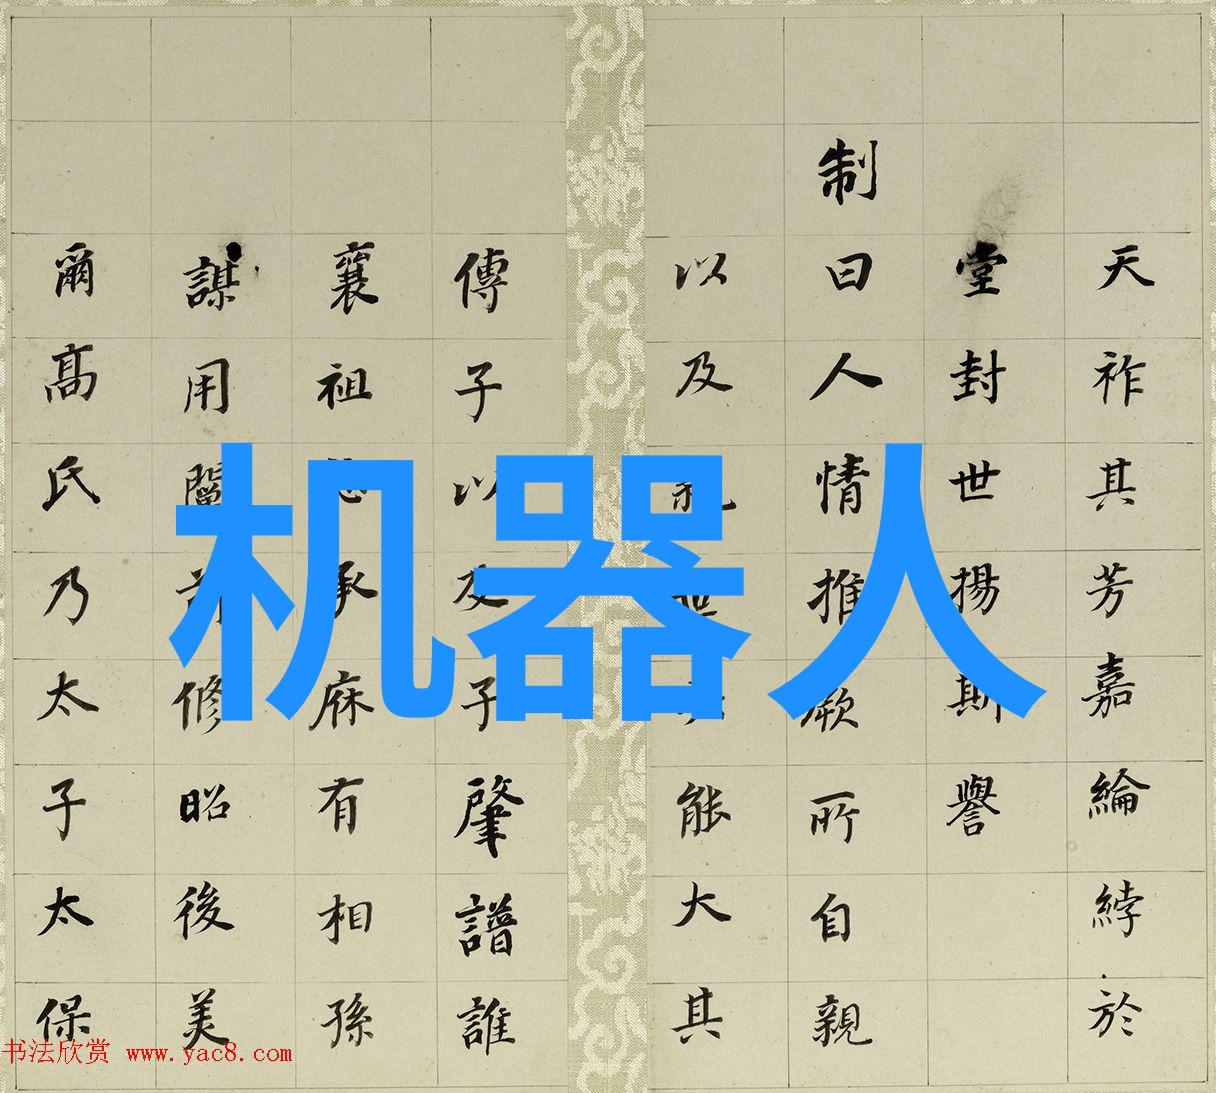 天祚其芳嘉綸綍於
堂封世揚斯譽
制曰人情推厥所自親
以及能大其
傳子以及子肇譜誰
襄祖承庥有相孫
謀用修昭後美
爾高氏乃太子太保
机器人
书法欣赏 www.yac8.com